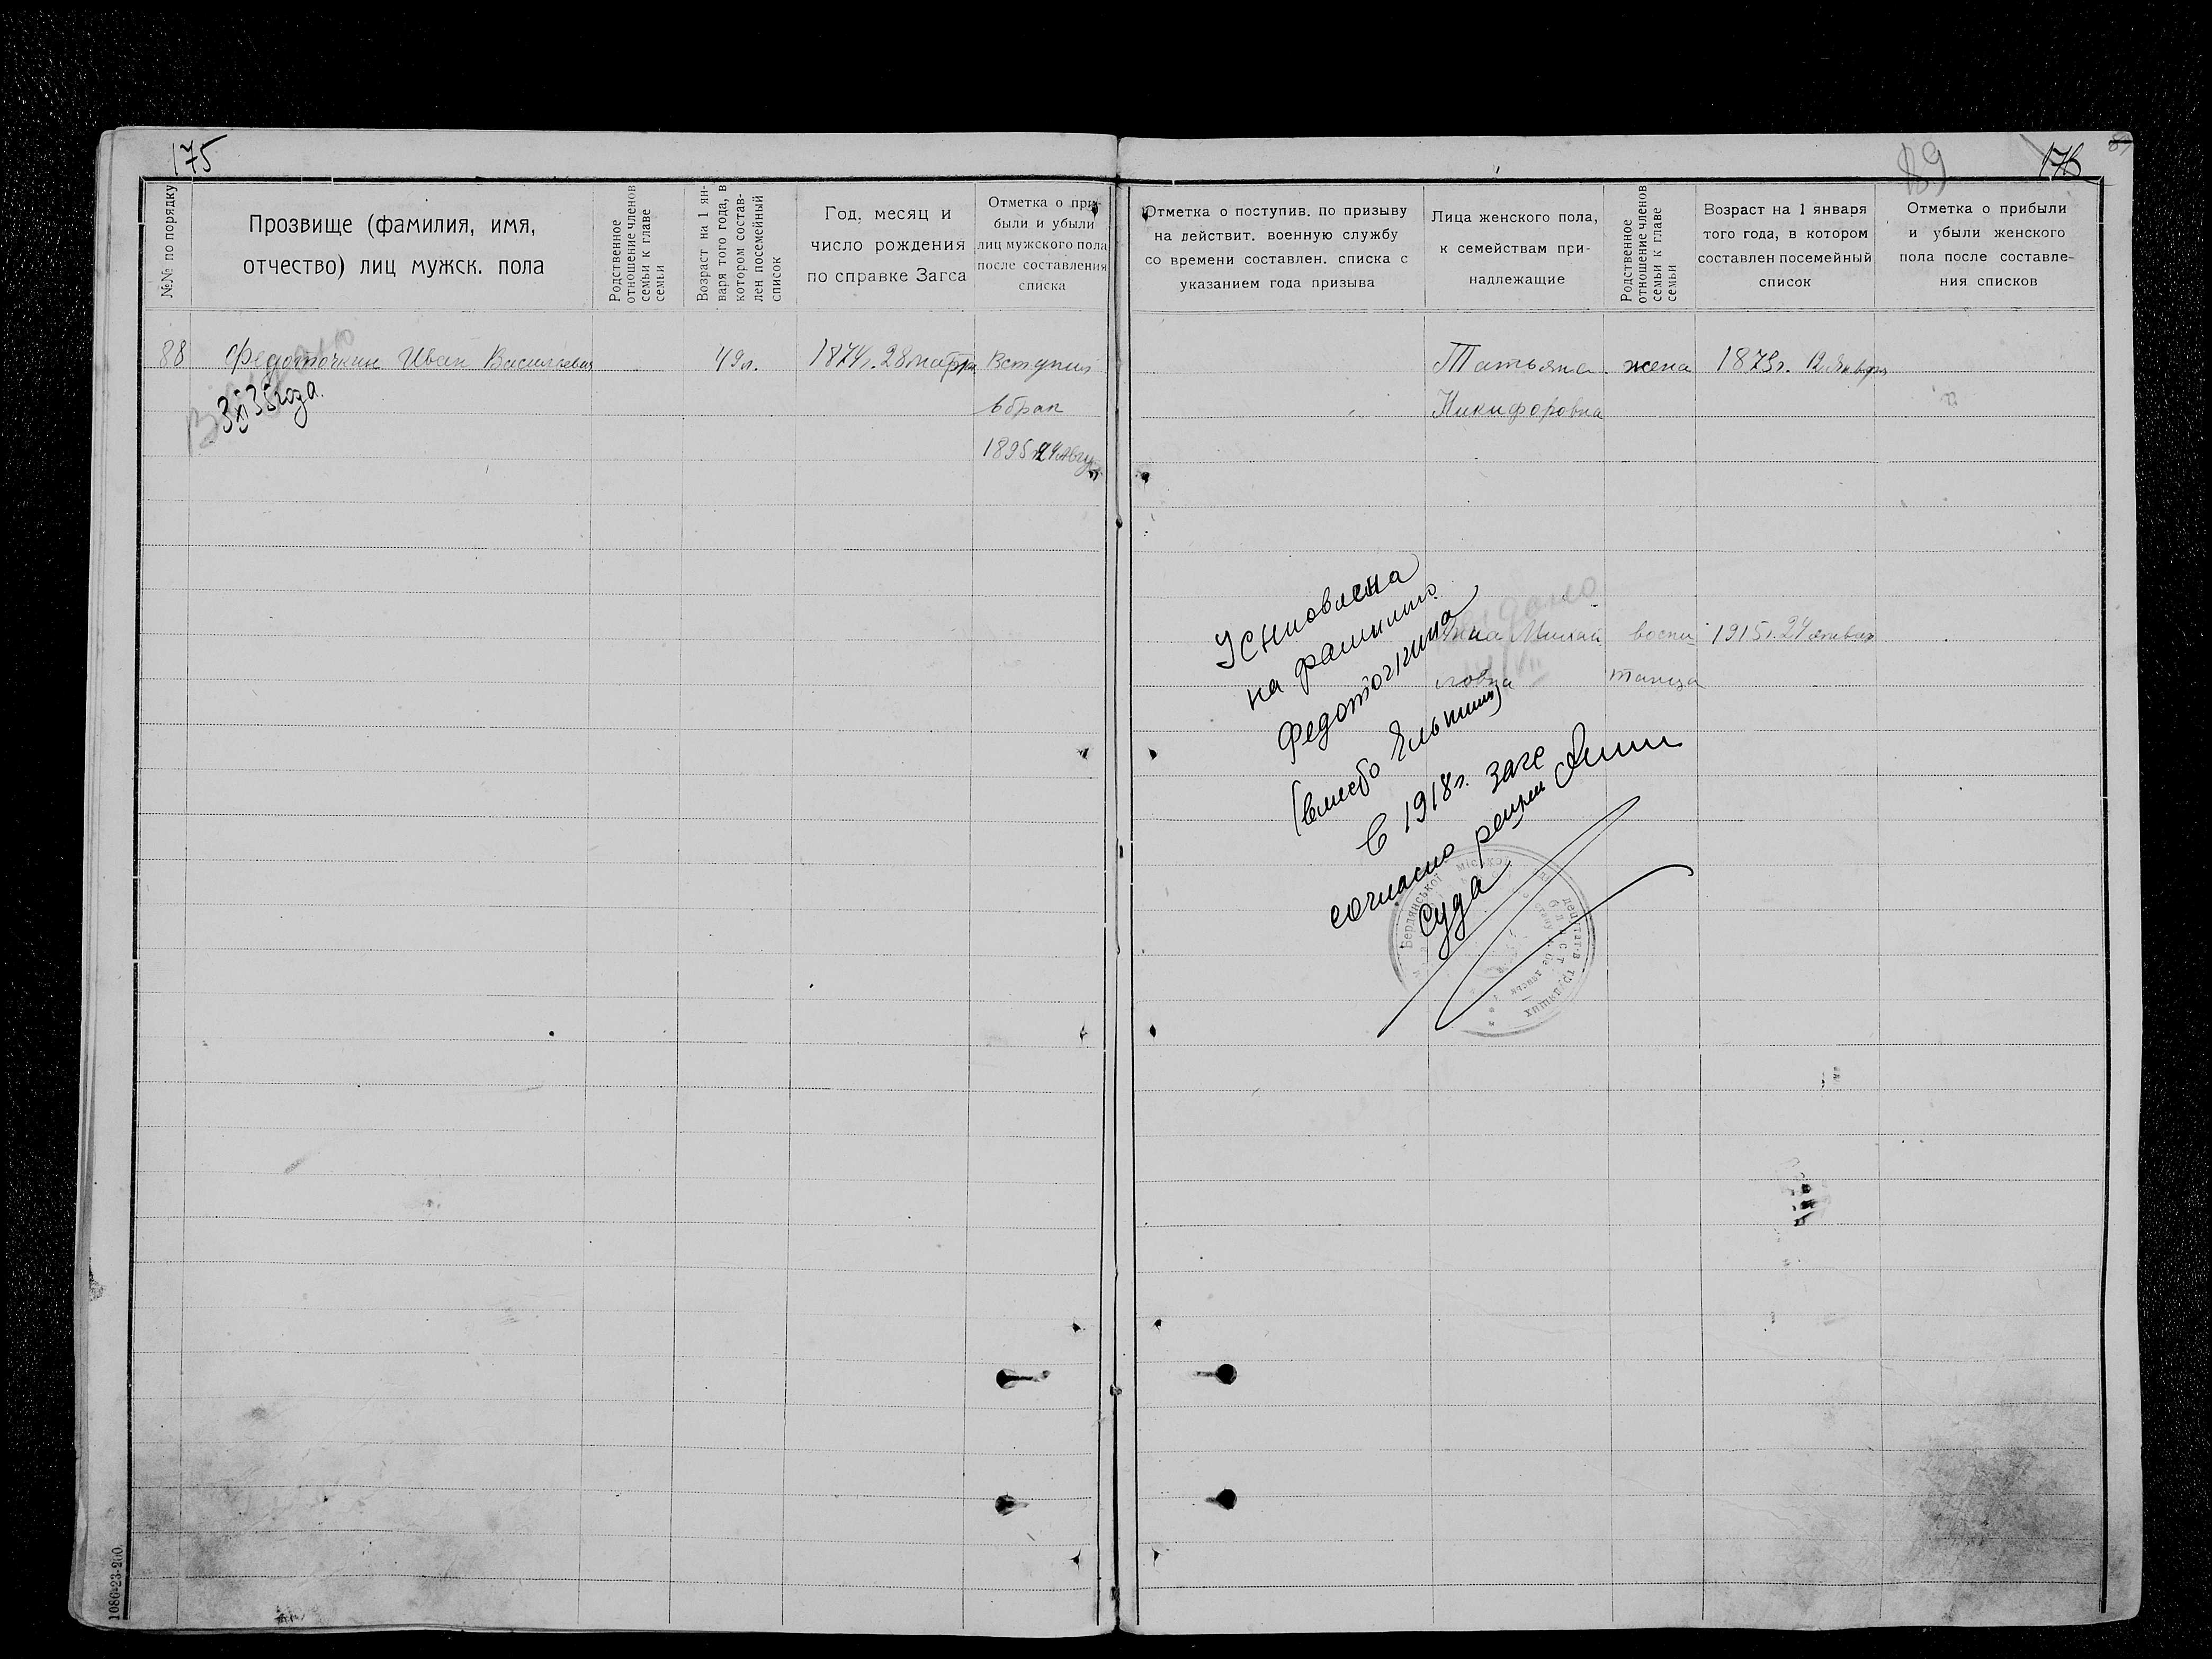 175
№№ по порядку
Прозвище (фамилия, имя,
отчество) лиц мужск. пола
Родственное
отношение членов
семьи к главе
семьи
Возраст на 1 ян-
варя того года, в
котором состав-
лен посемейный
список
Год, месяц и
число рождения
по справке Загса
Отметка о при-
были и убыли
лиц мужского пола
после составления
списка
88 Федоточкин Иван Васильевич 49 л. 1874 г. 28 марта Вступил
в брак
1895 24 Авгу
3 XI 35 года.
1086-23-200
89
176
Отметка о поступив. по призыву
на действит. военную службу
со времени составлен. списка с
указанием года призыва
Лица женского пола,
к семействам при-
надлежащие
Родственное
отношение членов
семьи к главе
семьи
Возраст на 1 января
того года, в котором
составлен посемейный
список
Отметка о прибыли
и убыли женского
пола после составле-
ния списков
Татьяна жена 1873 г. 12 Января
Никифоровна
Анна Михай воспи 1915 г. 24
ловна таница
Усыновлена
на фамилию
Федоточкина
(вместо
С 1918 г. загс
согласно решен
Суда
Бердянської міської